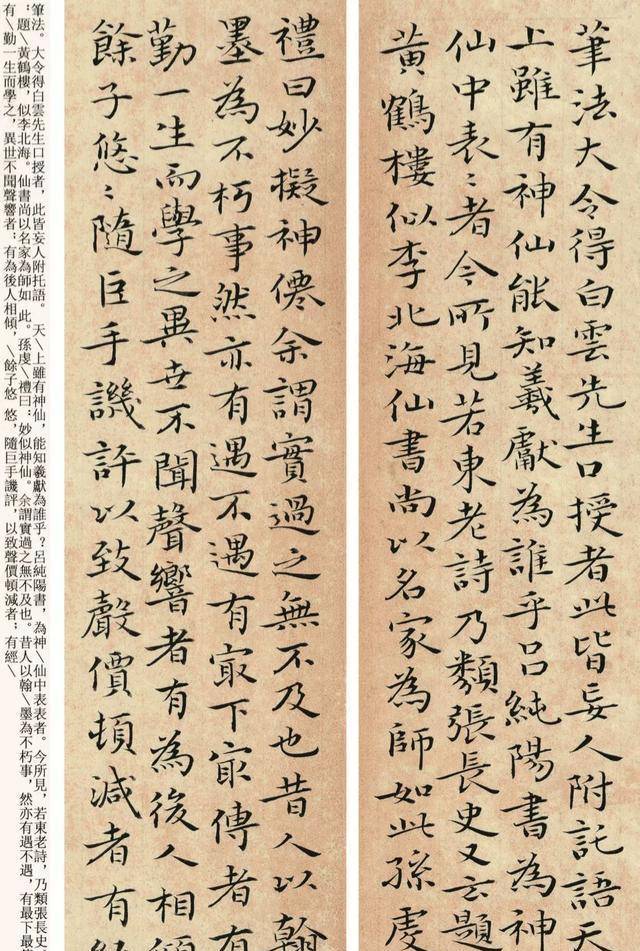 筆法大令得白雲先生口授者此皆妄人附託語天
上雖有神仙能知羲獻為誰乎呂純陽書為神
仙中表々者今所見若東老詩乃類張長史又云題
黃鶴樓似李北海仙書尚以名家為師如此孫虔
禮曰妙擬神僊余謂實過之無不及也昔人以翰
墨為不朽事然亦有遇不遇有㝡下㝡傳者有
勤一生而學之異世不聞聲響者有為後人相傾
餘子悠々隨巨手譏評以致聲價頓減者有
筆法。大令得白雲先生口授者，此皆妄人附托語。 天\上雖有神仙，能知羲獻為誰乎？呂純陽書，為神\仙中表表者。今所見，若東老詩，乃類張長史
；題\黃鶴樓，似李北海。仙書尚以名家為師如 此。孫虔\禮曰：妙似神仙。余謂實過之無不及也。昔人以翰\墨為不朽事，然亦有遇不遇，有最下最
有\勤一生而學之，異世不聞聲響者；有為後人相傾，\餘子悠 悠，隨巨手譏評，以致聲價頓減者；有經\